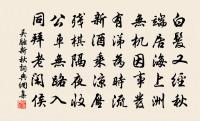 白髮又經秋
端居海上洲
無機因事發
有涕為時流
新酒乘涼壓
殘棋隔夜收
公車無路入
同拜老閑侯
吳融新秋詞典網集